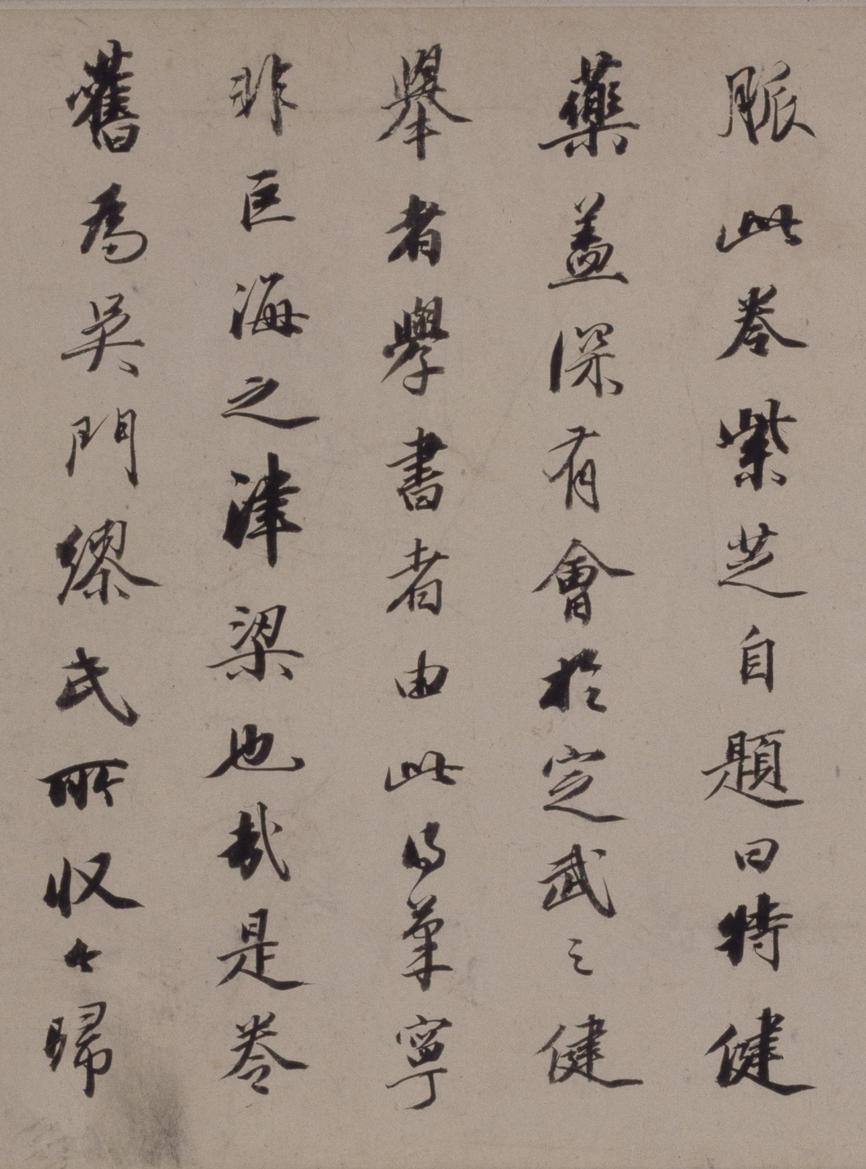 脈此卷紫芝自題曰特健
藥蓋深有會於定武之健
舉者學書者由此得筆寧
非巨海之津梁也哉是卷
舊為吳門繆氏所收今歸